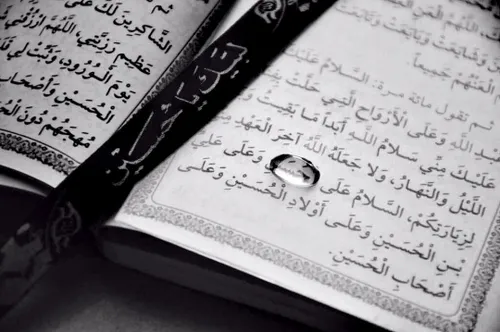 اللَّهُمَّ الْعَنِ
وَشَايَعَتْ وَبَايَعَتْ وَتَابَعَتْ
الْعَنْهُمْ جَمِيعاً.
ثم تقول مائة مرة: السَّلامُ عَلَيْكَ
اللهِ وَعَلَى الْأَرْوَاحِ الَّتِي حَلَّتْ
عَلَيْكَ مِنِّي سَلامُ اللهِ أَبَداً مَا بَقِيتُ
اللَّيْلُ وَالنَّهَارُ، وَلا جَعَلَهُ اللهُ آخِرَ الْعَهْدِ
لِزِيَارَتِكُمْ، السَّلامُ عَلَى وَعَلَى عَلِيِّ
بنِ الْحُسَيْنِ وَعَلَى أَوْلادِ الْحُسَيْنِ وَعَلَى
أَصْحَابِ الْحُسَيْنِ.
لبيك يا حسين
ثم
الشَّاكِرِينَ لَكَ عَلَى
عَظِيمِ رَزِيَّتِي، اللَّهُمَّ ارْزُقْنِي
يَوْمَ الْوُرُودِ، وَثَبِّتْ لِي
الْحُسَيْنِ وَأَصْحَابِ
مُهَجَهُمْ دُونَ